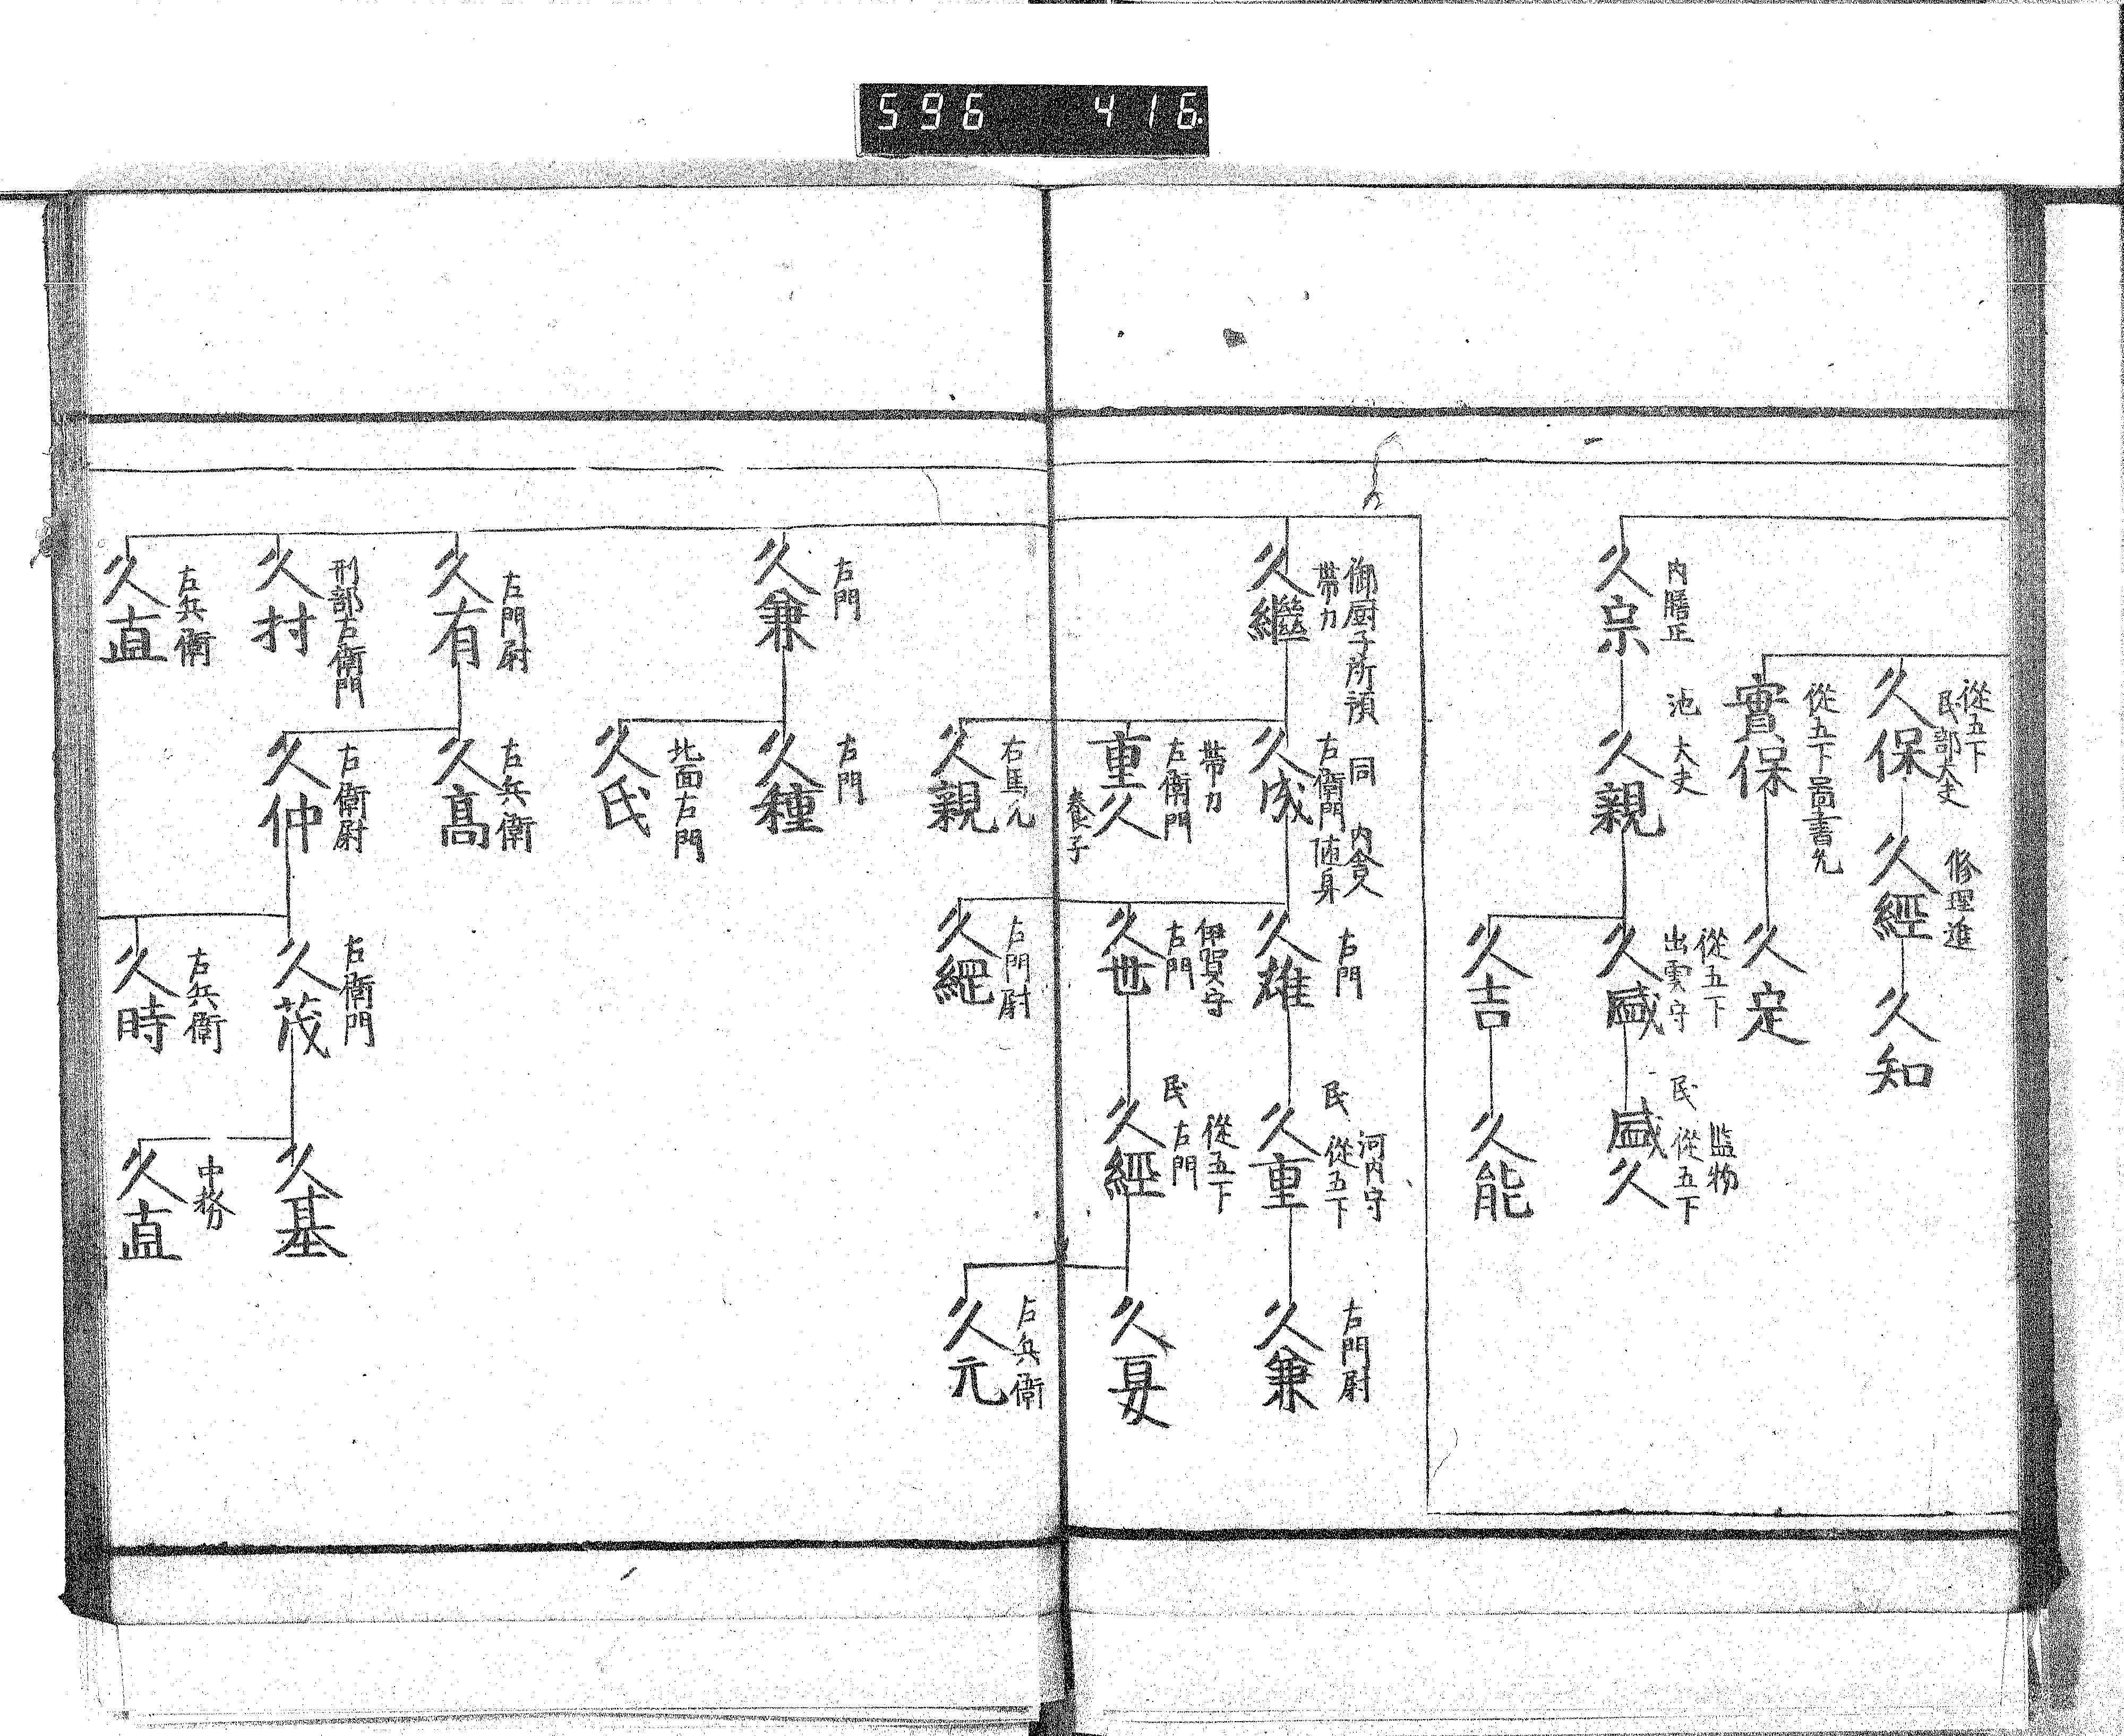 596 416
從五下
民部大夫
久保
修理進
久經
久知
從五下圖書允
實保
久定
内膳正
久宗
池大夫
久親
從五下
出雲守
久盛
監物
民從五下
盛久
久吉
久能
御厨子所預
帶刀
久繼
同 内舎人
右衛門 随身
久成
右門
久雄
河内守
民 從五下
久重
右門尉
久兼
帶刀
左衛門
重久
養子
伊賀守
右門
久世
從五下
民 右門
久經
久夏
右馬允
久親
右門尉
久綱
右兵衛
久元
右門
久兼
右門
久種
北面右門
久氏
左門尉
久有
右兵衛
久高
刑部右衛門
久村
右衛尉
久仲
右衛門
久茂
久基
右兵衛
久直
右兵衛
久時
中務
久直